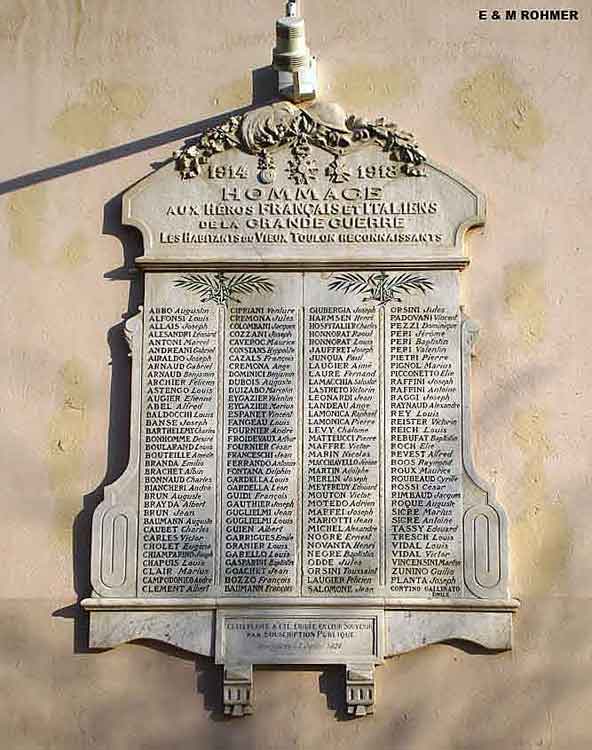 E & M ROHMER
1914 1918
HOMMAGE
AUX HÉROS FRANÇAIS ET ITALIENS
DE LA GRANDE GUERRE
LES HABITANTS DU VIEUX TOULON RECONNAISSANTS
ABBO Augustin
ALFONSI Louis
ALLAIS Joseph
ALESANDRI Léonard
ANTONI Marcel
ANDREANI Gabriel
AIRALDO Joseph
ARNAUD Gabriel
ARNAUD Benjamin
ARCHER Felicien
ASTENGO Louis
AUGIER Etienne
ABEL Alfred
BALDOCCHI Louis
BANSE Joseph
BARTHELEMY Charles
BONHOMME Desiré
BOULARAND Louis
BOUTEILLE Amedée
BRANDA Emile
BRACHET Albin
BONNAUD Charles
BIANCHERI André
BRUN Auguste
BRAYDA Albert
BRUN Jean
BAUMANN Auguste
CAUBET Charles
CARLES Victor
CHOLET Eugène
CHIAMPARINO Joseph
CHAPUIS Louis
CLAIR Marius
CAMPODONICO André
CLEMENT Albert
CIPRIANI Venture
CREMONA Jules
COLOMBANI Jacques
COZZANI Joseph
CAVEROC Maurice
CONSTANS Hyppolite
CAZALS François
CREMONA Ange
DOMINICI Benjamin
DUBOIS Auguste
DUIZABO Marcelin
EYGAZIER Vainlin
EYGAZIER Marius
ESPANET Vincent
FANGEAU Louis
FOURNIER André
FROIDEVAUX Arthur
FOURNIER César
FRANCESCHI Jean
FERRANDO Antonin
FONTANA Delphin
GARDELLA Louis
GARDELLA Léon
GUIDI François
GAUTHIER Joseph
GUGLIELMI Jean
GUGLIELMI Louis
GUIEN Albert
GARRIGUES Emile
GRANIER Louis
GARELLO Louis
GASPARINI Benjamin
GOACHET Jean
BOZZO François
BAUMANN François
GIUBERGIA Joseph
HARMSEN Henri
HOSPITALIER Charles
HONNORAT Raoul
HONNORAT Louis
JAUFFRET Joseph
JUNQUA Paul
LAUGIER Aimé
LAURE Fernand
LAMACCHIA Salvador
LASTRETO Victorin
LEONARD Jean
LANDEAU Ange
LAMONICA Raphaël
LAMONICA Pierre
LEVY Chalome
MATTEUCCI Pierre
MAFFRE Victor
MARIN Nicolas
MACCHIAVELLO Jérôme
MARTIN Adolphe
MERLIN Joseph
MEYFREDY Edouard
MOUTON Victor
MOTEDO Adrien
MAFFEI Joseph
MARIOTTI Jean
MICHEL Alexandre
NOGRE Ernest
NOVANTA Henri
NEGRE Baptistin
ODDE Jules
ORSINI Toussaint
LAUGIER Felicien
SALOMONE Jean
ORSINI Jules
PADOVANI Vincent
PEZZI Dominique
PERI Jérôme
PERI Baptistin
PERI Valentin
PIETRI Pierre
PIGNOL Marius
PICCONETTO Elie
RAFFINI Joseph
RAFFINI Antoine
RAGGI Joseph
RAYNAUD Alexandre
REY Louis
REISTER Victorin
REICH Louis
REBUFAT Baptistin
ROCH Elie
REVEST Alfred
BOOS Raymond
ROUX Maurice
ROUBEAUD Cyrille
ROSSI César
RIMBAUD Jacques
ROQUE Auguste
SICRE Marius
SICRE Antoine
TASSY Edouard
TRESCH Louis
VIDAL Louis
VIDAL Victor
VINCENSINI Martin
ZUNINO Guilio
PLANTA Joseph
CORTINO GALLINATO
EMILE
CETTE PLAQUE A ÉTÉ ÉRIGÉE EN LEUR SOUVENIR
PAR SOUSCRIPTION PUBLIQUE